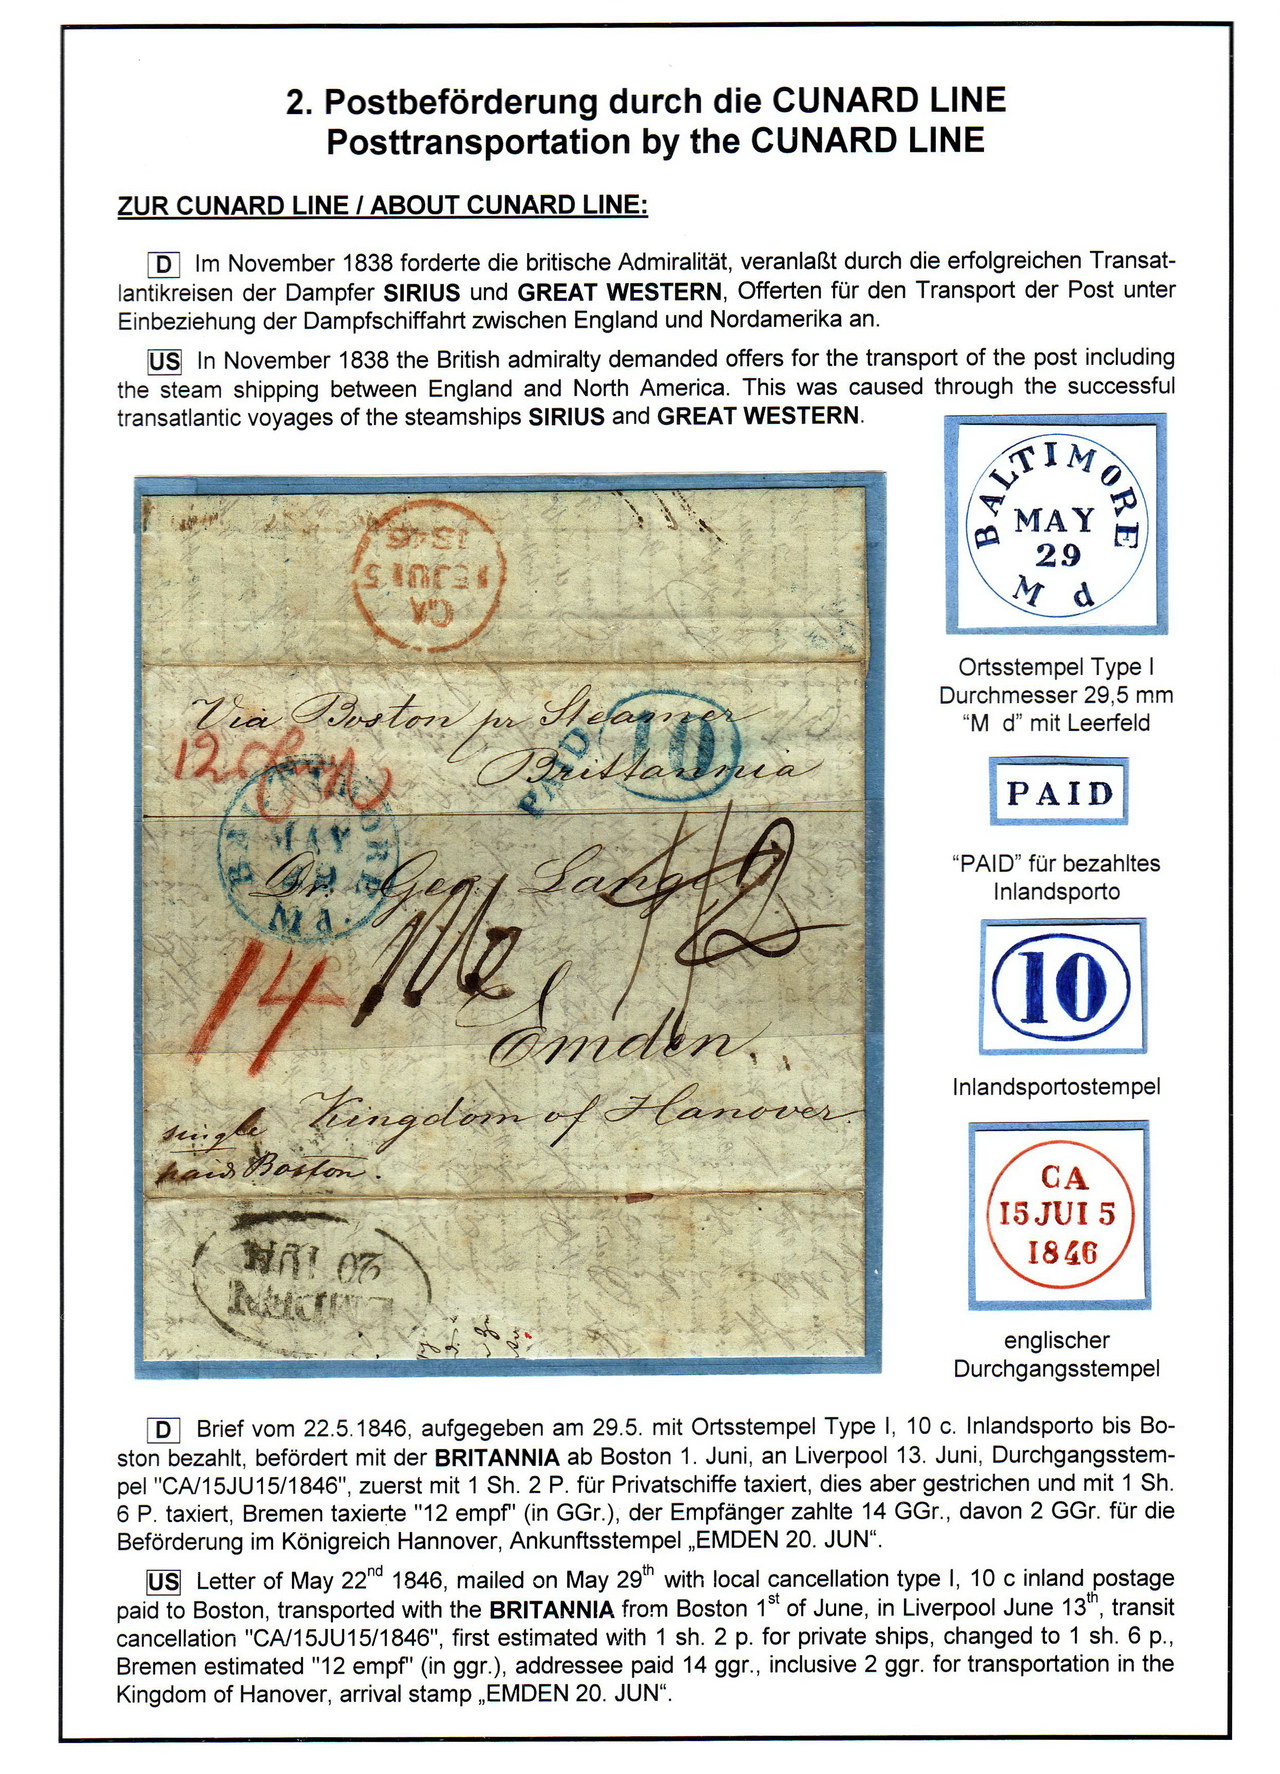 2. Postbeförderung durch die CUNARD LINE
Posttransportation by the CUNARD LINE
ZUR CUNARD LINE / ABOUT CUNARD LINE:
D Im November 1838 forderte die britische Admiralität, veranlaßt durch die erfolgreichen Transat-
lantikreisen der Dampfer SIRIUS und GREAT WESTERN, Offerten für den Transport der Post unter
Einbeziehung der Dampfschiffahrt zwischen England und Nordamerika an.
US In November 1838 the British admiralty demanded offers for the transport of the post including
the steam shipping between England and North America. This was caused through the successful
transatlantic voyages of the steamships SIRIUS and GREAT WESTERN.
CA
15 JUI 5
1846
Via Boston pr Steamer
Brittannia
PAID 10
12
BALTIMORE
MAY
Md
Dr. Geo. Lange
14
Emden.
Kingdom of Hanover.
single
paid Boston.
EMDEN
20 JUN
BALTIMORE
MAY
29
M d
Ortsstempel Type I
Durchmesser 29,5 mm
“M d” mit Leerfeld
PAID
“PAID” für bezahltes
Inlandsporto
10
Inlandsportostempel
CA
15 JUI 5
1846
englischer
Durchgangsstempel
D Brief vom 22.5.1846, aufgegeben am 29.5. mit Ortsstempel Type I, 10 c. Inlandsporto bis Bo-
ston bezahlt, befördert mit der BRITANNIA ab Boston 1. Juni, an Liverpool 13. Juni, Durchgangsstem-
pel "CA/15JU15/1846", zuerst mit 1 Sh. 2 P. für Privatschiffe taxiert, dies aber gestrichen und mit 1 Sh.
6 P. taxiert, Bremen taxierte "12 empf" (in GGr.), der Empfänger zahlte 14 GGr., davon 2 GGr. für die
Beförderung im Königreich Hannover, Ankunftsstempel „EMDEN 20. JUN“.
US Letter of May 22nd 1846, mailed on May 29th with local cancellation type I, 10 c inland postage
paid to Boston, transported with the BRITANNIA from Boston 1st of June, in Liverpool June 13th, transit
cancellation "CA/15JU15/1846", first estimated with 1 sh. 2 p. for private ships, changed to 1 sh. 6 p.,
Bremen estimated "12 empf" (in ggr.), addressee paid 14 ggr., inclusive 2 ggr. for transportation in the
Kingdom of Hanover, arrival stamp „EMDEN 20. JUN“.